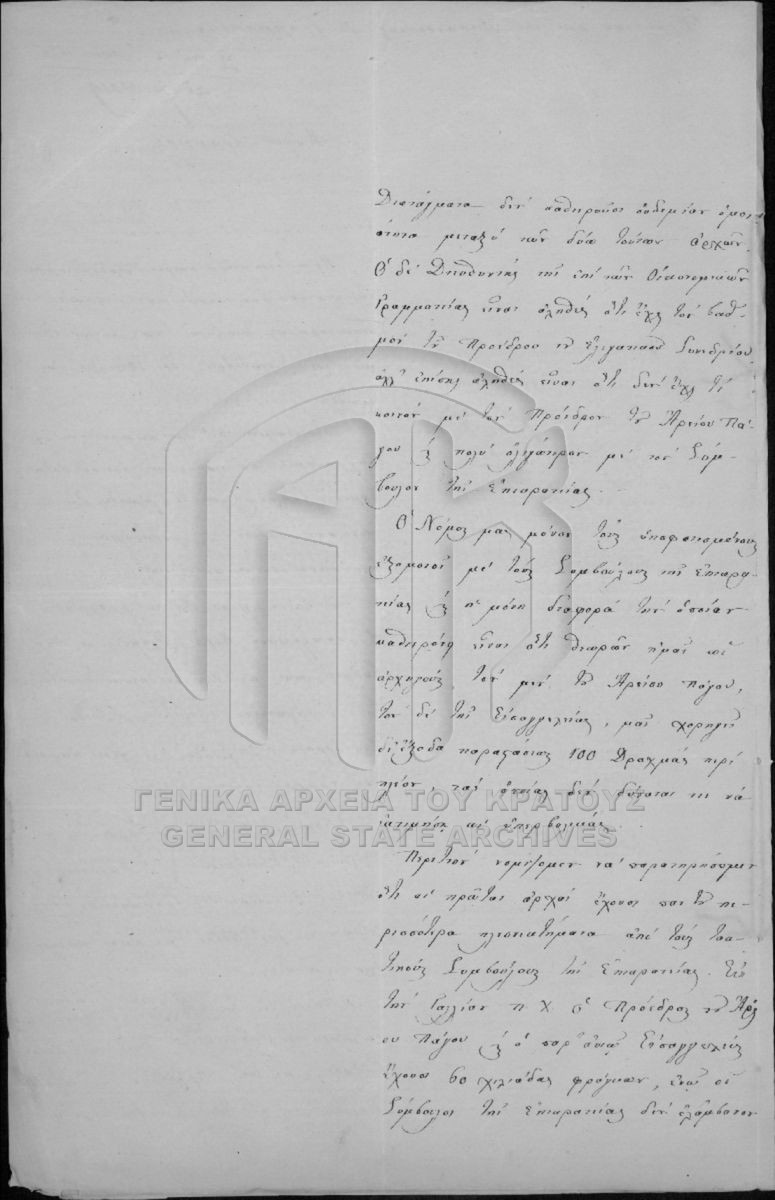 Διατάγματα δεν καθιερούσι ουδεμίαν ομοι-
ότητα μεταξύ των δύω τούτων αρχών.
Ο δε Διευθυντής της επί των Οικονομικών
Γραμματείας είναι αληθές ότι έχει τον βαθ-
μόν του Προέδρου του Ελεγκτικού Συνεδρίου,
αλλ' επίσης αληθές είναι ότι δεν έχει τι
κοινόν με τον Πρόεδρον του Αρείου Πά-
γου και πολύ ολιγώτερον με τον Σύμ-
βουλον της Επικρατείας.
Ο Νόμος μας μόνον τους υποφαινομένους
εξομοιοί με τους Συμβούλους της Επικρα-
τείας και η μόνη διαφορά την οποίαν
καθιερόνει είναι ότι θεωρών ημάς ως
αρχηγούς τον μεν του Αρείου πάγου,
τον δε της Εισαγγελείας, μας χορηγεί
δι' έξοδα παραστάσεως 100 Δραχμάς περι
πλέον, τας οποίας δεν δύναται τις να
εκτιμήση ως υπερβολικάς.
Περιττόν νομίζομεν να παρατηρήσωμεν
ότι αι πρώται αρχαί έχουσι παντού πε-
ρισσότερα πλεονεκτήματα από τους τακ-
τικούς Συμβούλους της Επικρατείας. Εις
την Γαλλίαν π. χ. ο Πρόεδρος του Αρεί
ου Πάγου και ο παρ' αυτώ Εισαγγελεύς
έχουσι 60 χιλιάδας φράγκων, ενώ οι
Σύμβουλοι της Επικρατείας δεν ελάμβανον
ΓΕΝΙΚΑ ΑΡΧΕΙΑ ΤΟΥ ΚΡΑΤΟΥΣ
GENERAL STATE ARCHIVES